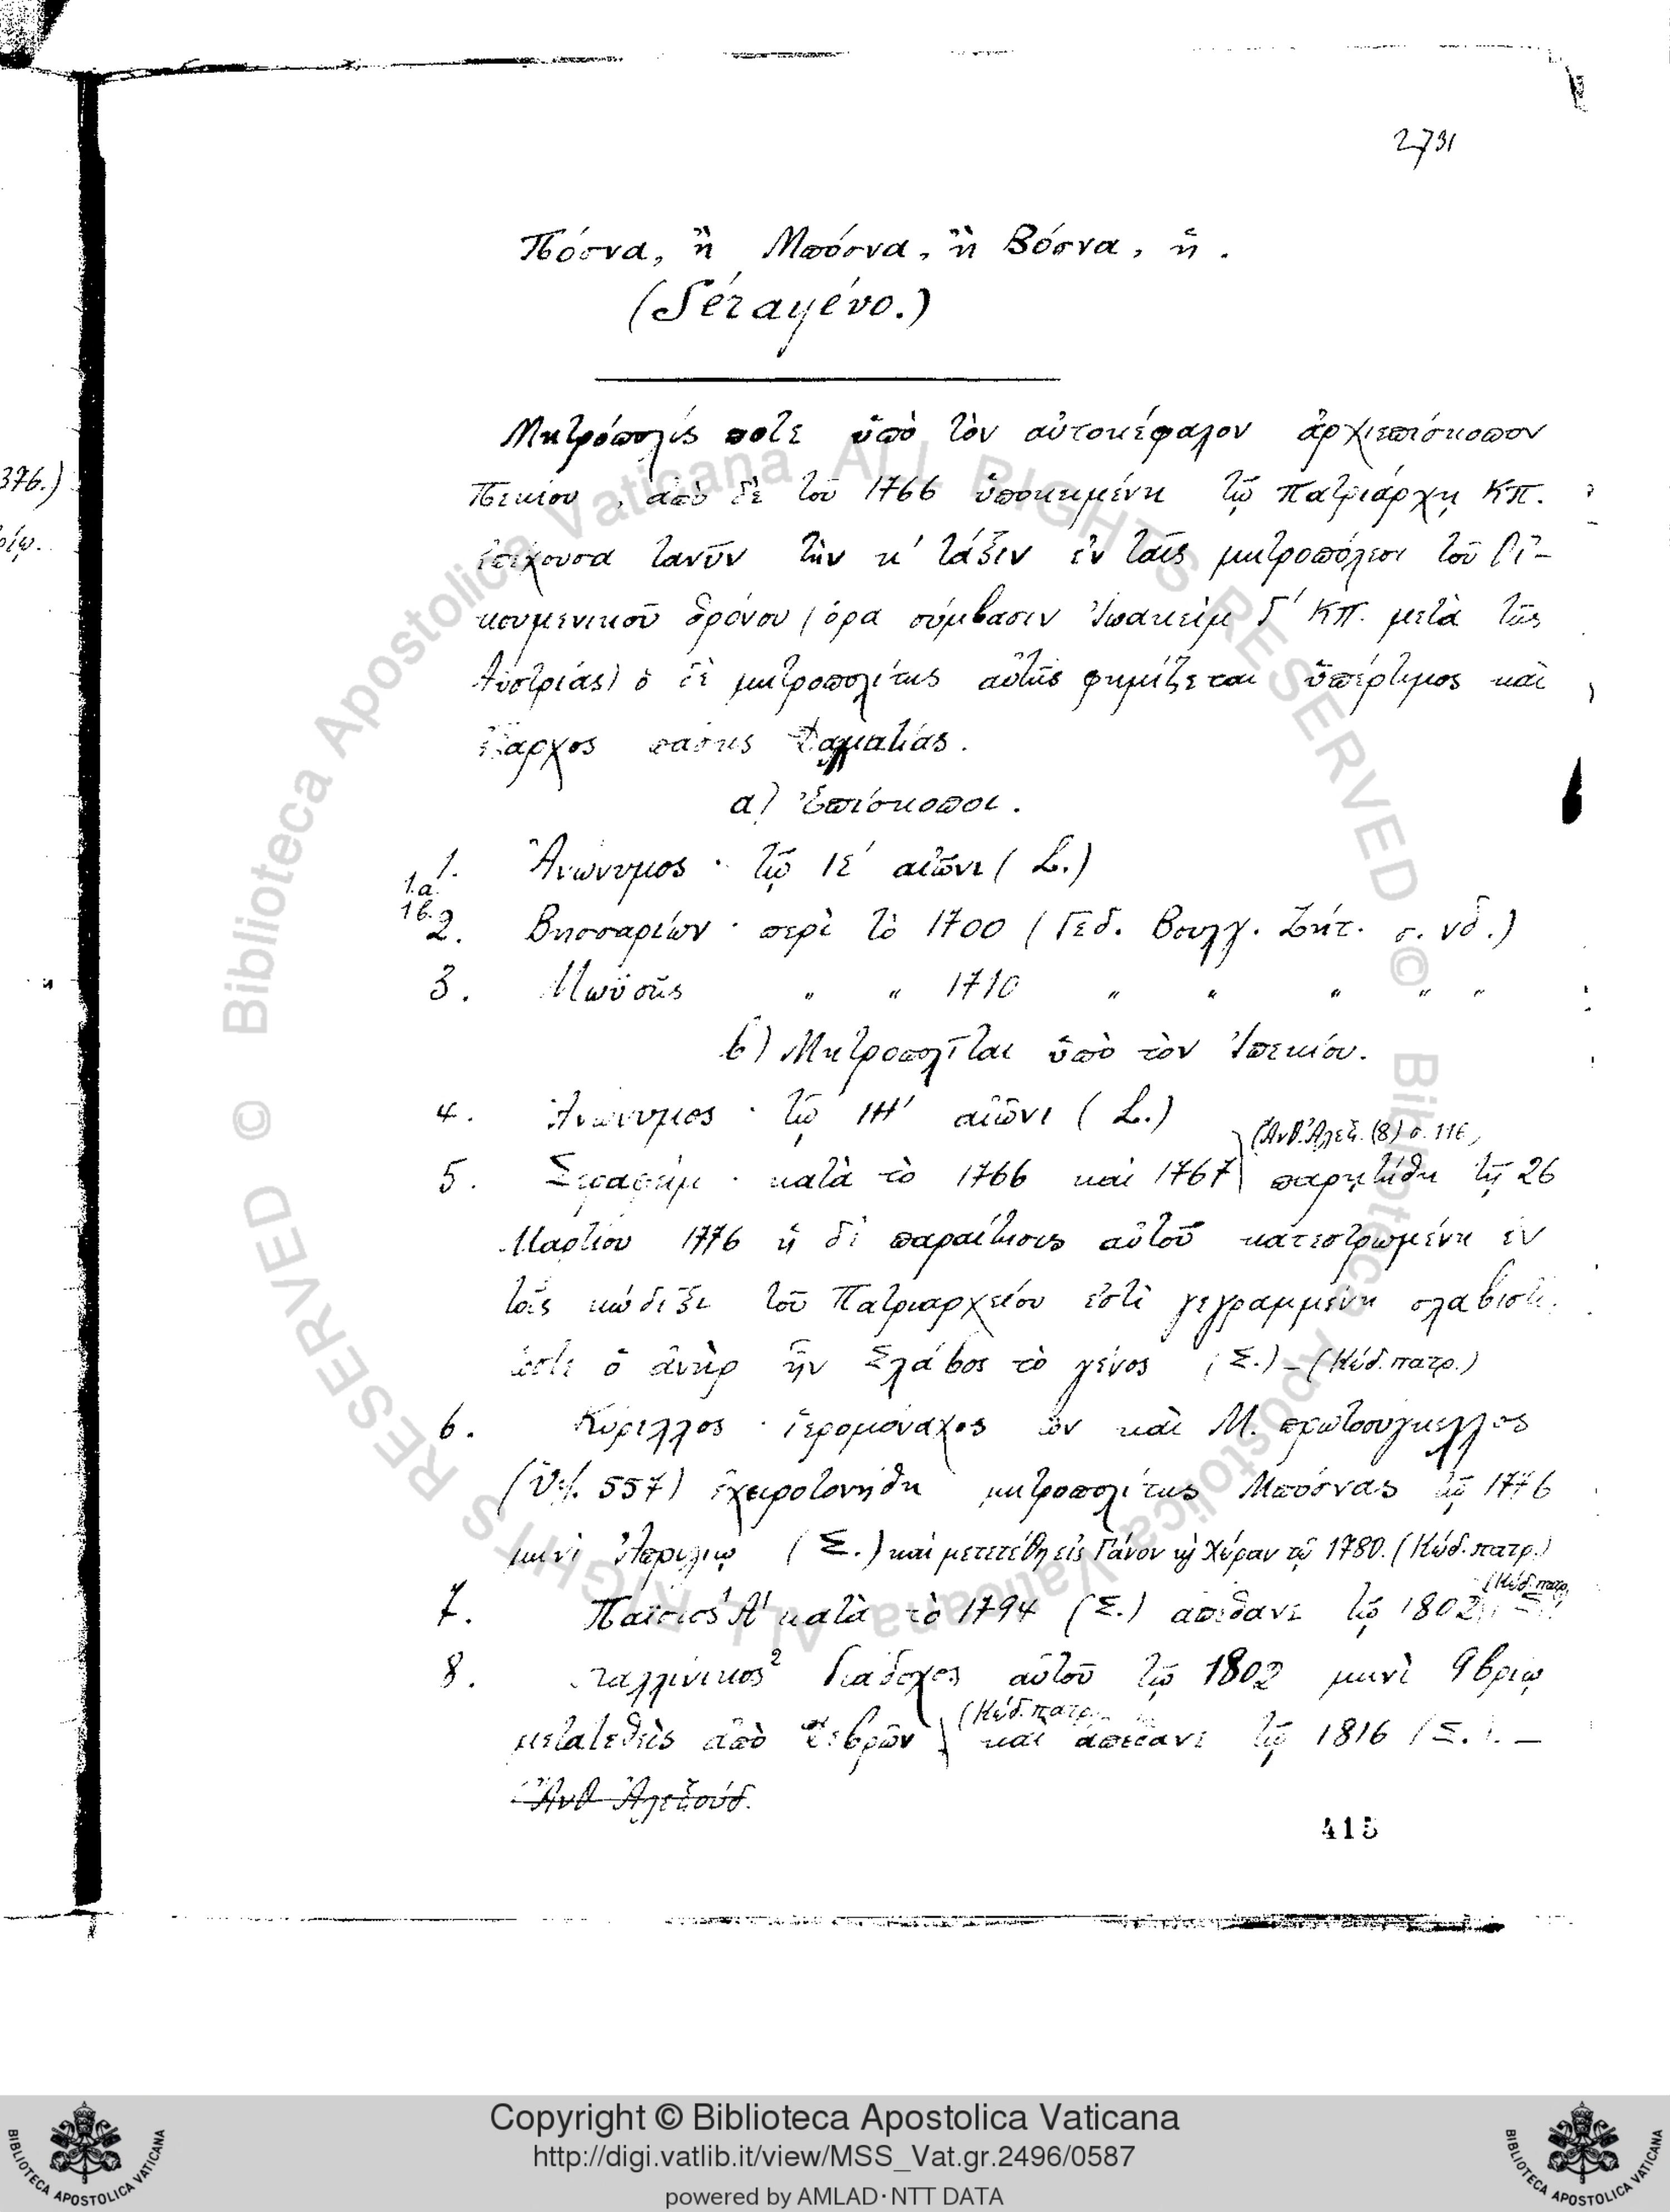 2731
Πόσνα, ἢ Μπόσνα, ἢ Βόσνα, ἡ.
(Sérayévo.)
Μητρόπολις ποτε ὑπὸ τὸν αὐτοκέφαλον ἀρχιεπίσκοπον
376.)
Πεκίου, ἀπὸ δὲ τοῦ 1766 ὑποκειμένη τῷ Πατριάρχῃ ΚΠ.
ἐπέχουσα τανῦν τὴν κ' τάξιν ἐν ταῖς μητροπόλεσι τοῦ Οἰ-
κουμενικοῦ θρόνου (ὅρα σύμβασιν Ἰωακεὶμ Γ' ΚΠ. μετὰ τῆς
Αὐστρίας) ὁ δὲ μητροπολίτης αὐτῆς φημίζεται ὑπέρτιμος καὶ
ἔξαρχος πάσης Δαλματίας.
α) Ἐπίσκοποι.
1. Ἀνώνυμος · τῷ ΙϚ' αἰῶνι (L.)
1.α.
1β.
2. Βησσαρίων · περὶ τὸ 1700 (Γεδ. Βουλγ. Ζήτ. σ. νδ.)
3. Μωϋσῆς " " 1710 " " " " "
β) Μητροπολῖται ὑπὸ τὸν Ἰπεκίου.
4. Ἀνώνυμος · τῷ ΙΗ' αἰῶνι (L.)
(Ἀνθ. Ἀλεξ. (8) σ. 116)
5. Σεραφείμ · κατὰ τὸ 1766 καὶ 1767 παρῃτήθη τῇ 26
Μαρτίου 1776 ἡ δὲ παραίτησις αὐτοῦ κατεστρωμένη ἐν
τοῖς κώδιξι τοῦ Πατριαρχείου ἐστὶ γεγραμμένη σλαβιστὶ,
ὥστε ὁ ἀνὴρ ἦν Σλάβος τὸ γένος (Σ.) – (Κώδ. πατρ.)
6. Κύριλλος · ἱερομόναχος ὢν καὶ Μ. πρωτοσύγκελλος
(Ὑψ. 557) ἐχειροτονήθη μητροπολίτης Μπόσνας τῷ 1776
μηνὶ Ἀπριλίῳ (Σ.) καὶ μετετέθη εἰς Γάνον κ Χώραν τῷ 1780. (Κώδ. πατρ.)
(Κώδ. πατρ.
7. Παΐσιος¹ Α' κατὰ τὸ 1794 (Σ.) ἀπέθανε τῷ 1802
8. Καλλίνικος² διάδοχος αὐτοῦ τῷ 1802 μηνὶ 9βρίῳ
(Κώδ. πατρ.
μετατεθεὶς ἀπὸ Δεβρῶν καὶ ἀπέθανε τῷ 1816 (Σ.). –
Ἀνθ Ἀλεξούδ.
415
© Biblioteca Apostolica Vaticana ALL RIGHTS RESERVED © Biblioteca Apostolica Vaticana ALL RIGHTS RESERVED
Copyright © Biblioteca Apostolica Vaticana
http://digi.vatlib.it/view/MSS_Vat.gr.2496/0587
powered by AMLAD·NTT DATA
BIBLIOTECA APOSTOLICA VATICANA
BIBLIOTECA APOSTOLICA VATICANA